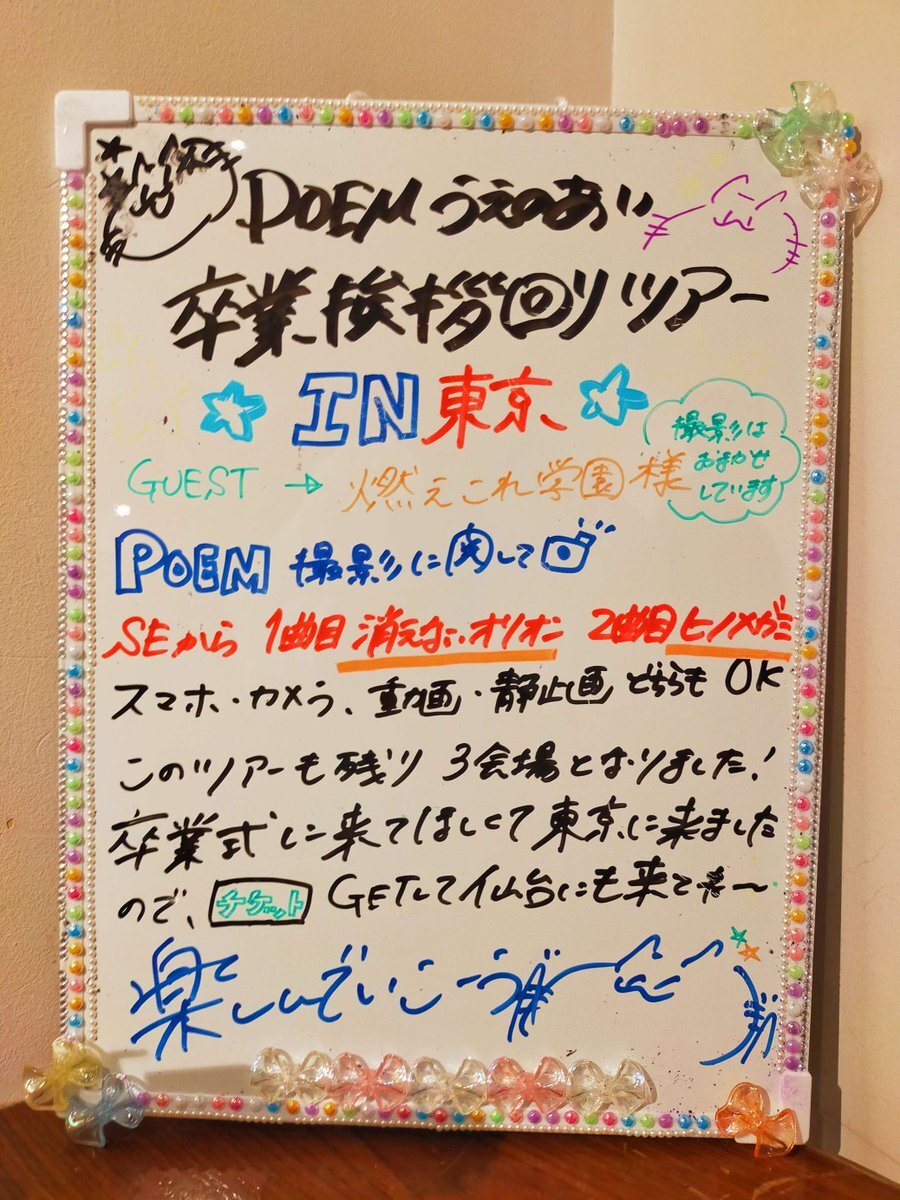 POEM うえのあい
卒業挨拶回りツアー
IN 東京
GUEST → 燃えこれ学園様
撮影は
おまかせ
しています
POEM 撮影に関して
SEから 1曲目 消えないオリオン 2曲目 ヒノメガミ
スマホ・カメラ、動画・静止画 どちらも OK
このツアーも残り 3会場となりました!
卒業式に来てほしくて東京に来ました
ので、チケット GETして仙台にも来て〜
楽しんでいこーう